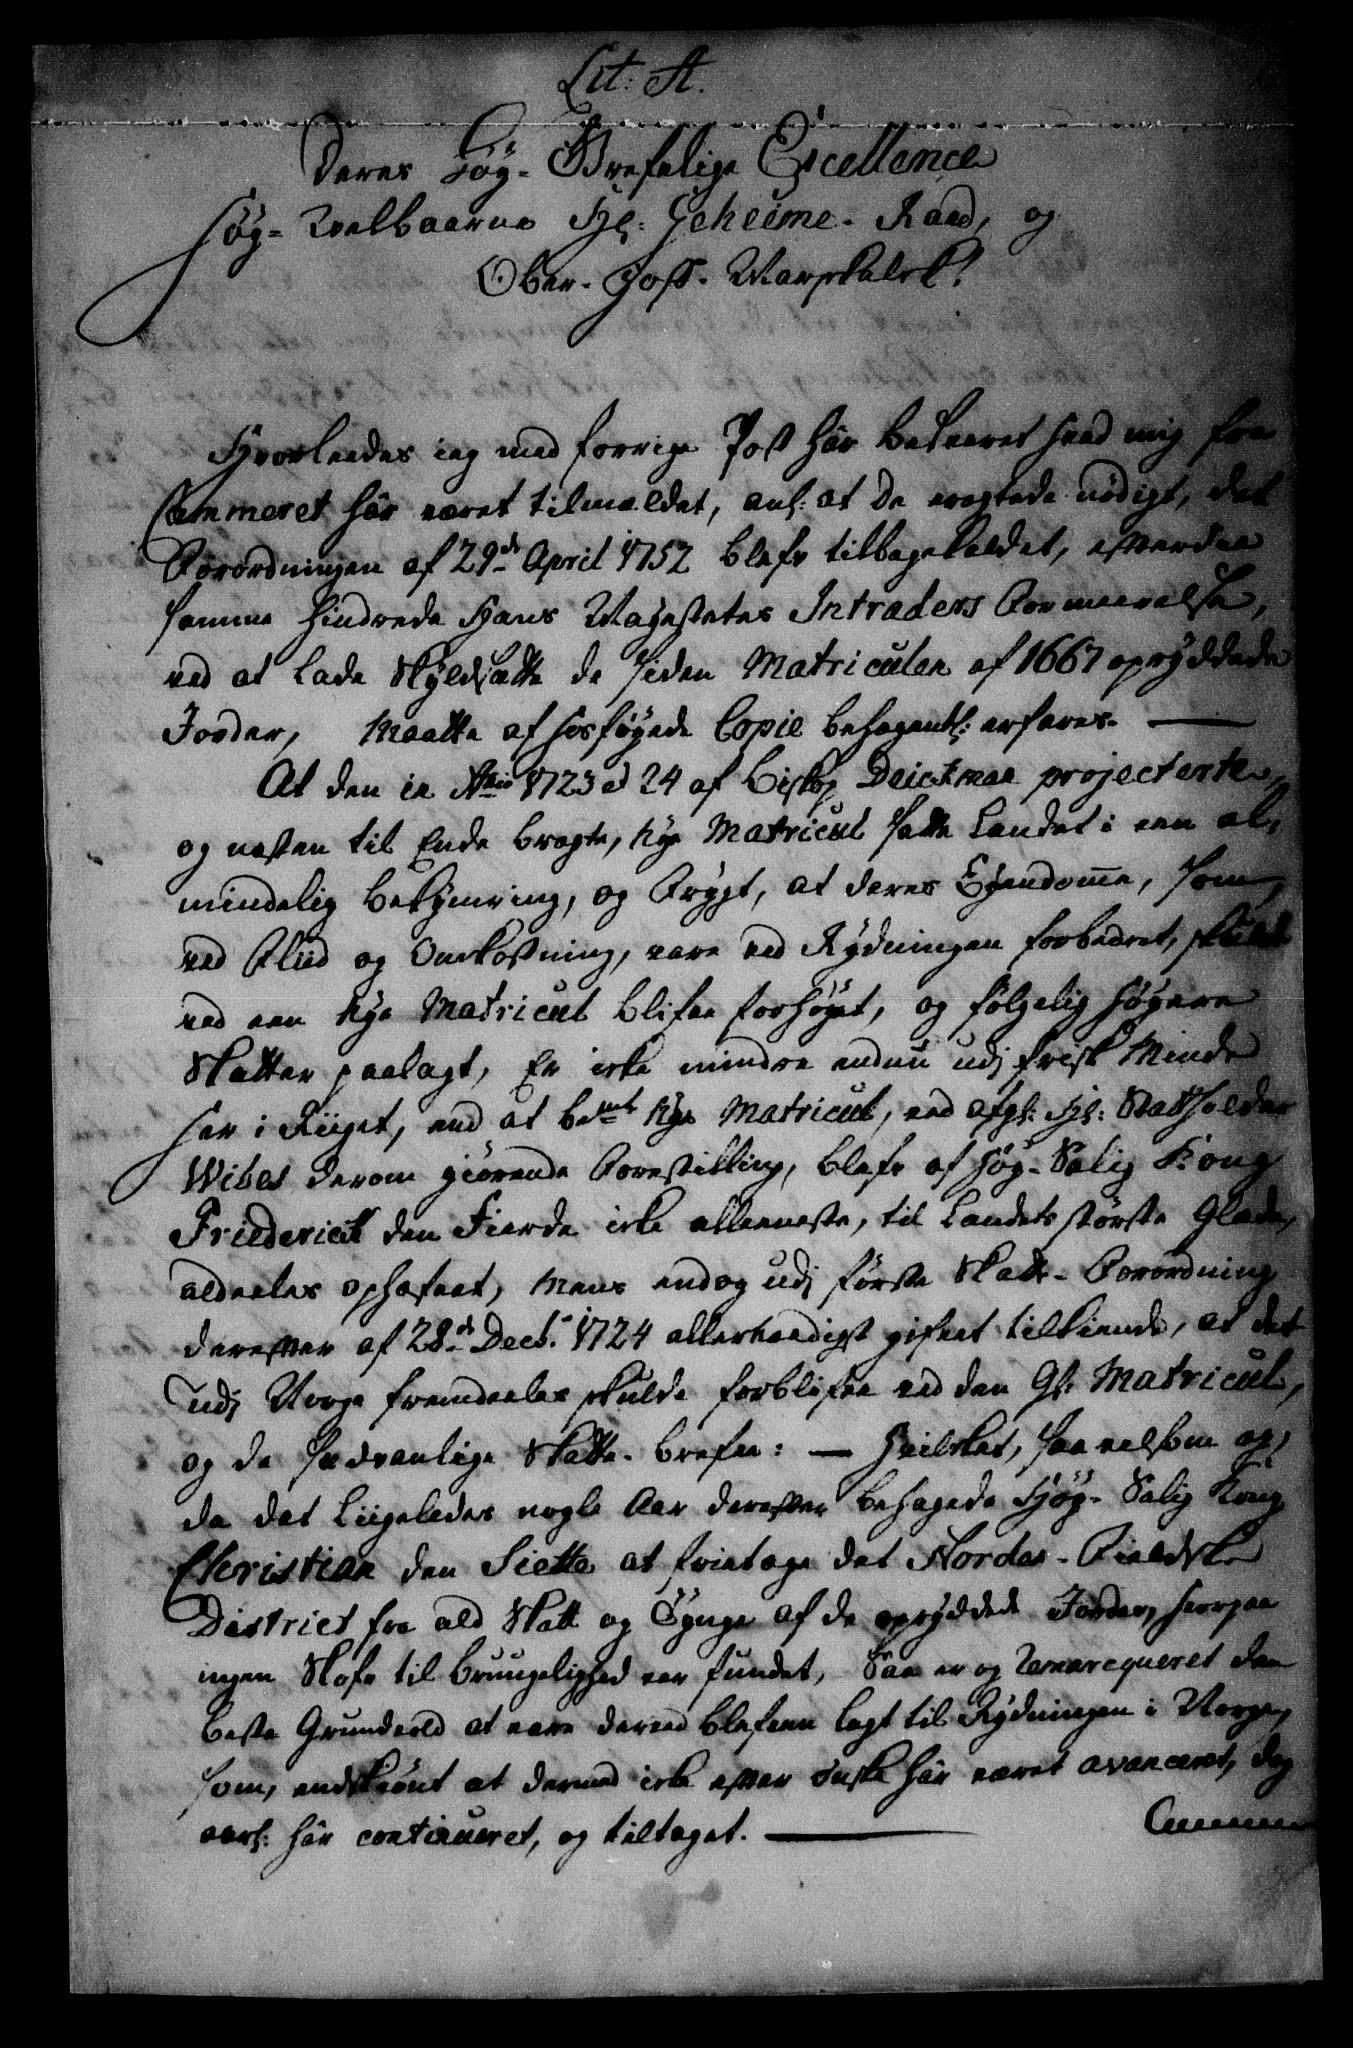 Lit: A.
Deres Høy-Grefelige Excellence
Høy-Welbaarne Hr: Geheime-Raad, og
Ober-Hoff-Marskalck!
Hvorleedes ieg med forrige Post har besvaret hvad mig fra
Cammeret har været tilmældet, anl: at de eragtede nödigt, det
Forordningen af 29de April 1752 blefv tilbagekaldet, efterdee
samme hindrede Hans Mayestetes Intraders Formeerelse,
ved at lade Skyldsætte de siden Matriculen af 1667 opryddede
Jorder, maatte af hosføyede Copie behagentl: erfares. —
At den in Anno 1723 et 24 af Biskop Deichman projecterte,
og nesten til Ende bragte, nye Matricul satte Landet i een al,
mindelig bekymring, og Frygt, at deres Eyendomme, som,
ved Fliid og Omkostning, vare ved Rydningen forbedret, skulde
ved een nye Matricul blifve forhøyet, og følgelig høyere
Skatter paalagt, Er icke mindre endnu udj frisk Minde
her i Riiget, end at bemte nye Matricul, ved afgl: Hr: Statholder
Wibes derom giörende Forestilling, blefv af Høy-Salig Kong
Friederich den Fierde icke alleeneste, til Landets største Glæde,
aldeeles ophæfvet, Mens endog udj første Skatte-Forordning
derefter af 28de Decbr 1724 allernaadigst gifvet tilkiende, at det
udj Norge fremdeeles skulde forblifve ved den Gl: Matricul,
og de sædvanlige Skatte-brefve: — Hvilcket, saavelsom og,
da det Liigeledes nogle Aar derefter behagede Høy-Salig Kong
Christian den Siette at frietage det Norden-Fieldske
District fra ald Skatt og Tynge af de opryddede Jorder, hvorpaa
ingen Skofv til bruugelighed var fundet, Saa er og remarcqueret den
beste Grundvold at være derved blefven lagt til Rydningen i Norge,
som, endskiönt at dermed icke efter önske har været avanceret, dog
aarl: har continueret, og tiltaget. —